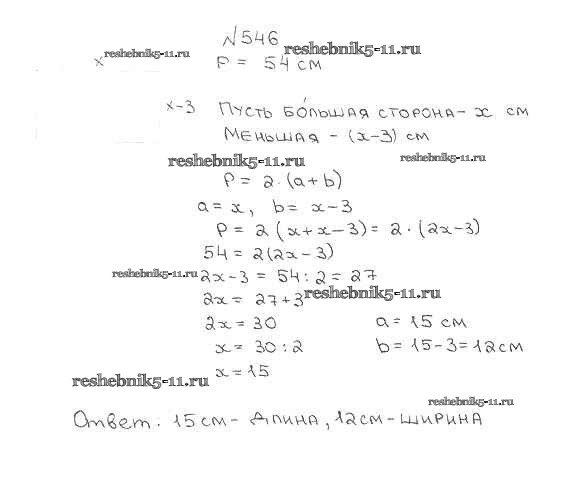 №546
reshebnik5-11.ru reshebnik5-11.ru
x P = 54 см
x-3 Пусть бо́льшая сторона - x см
Меньшая - (x-3) см
reshebnik5-11.ru reshebnik5-11.ru
P = 2·(a+b)
a = x, b = x-3
P = 2(x+x-3) = 2·(2x-3)
54 = 2(2x-3)
reshebnik5-11.ru 2x-3 = 54:2 = 27
2x = 27+3 reshebnik5-11.ru
2x = 30 a = 15 см
x = 30:2 b = 15-3 = 12 см
x = 15
reshebnik5-11.ru
reshebnik5-11.ru
Ответ: 15 см - длина, 12 см - ширина